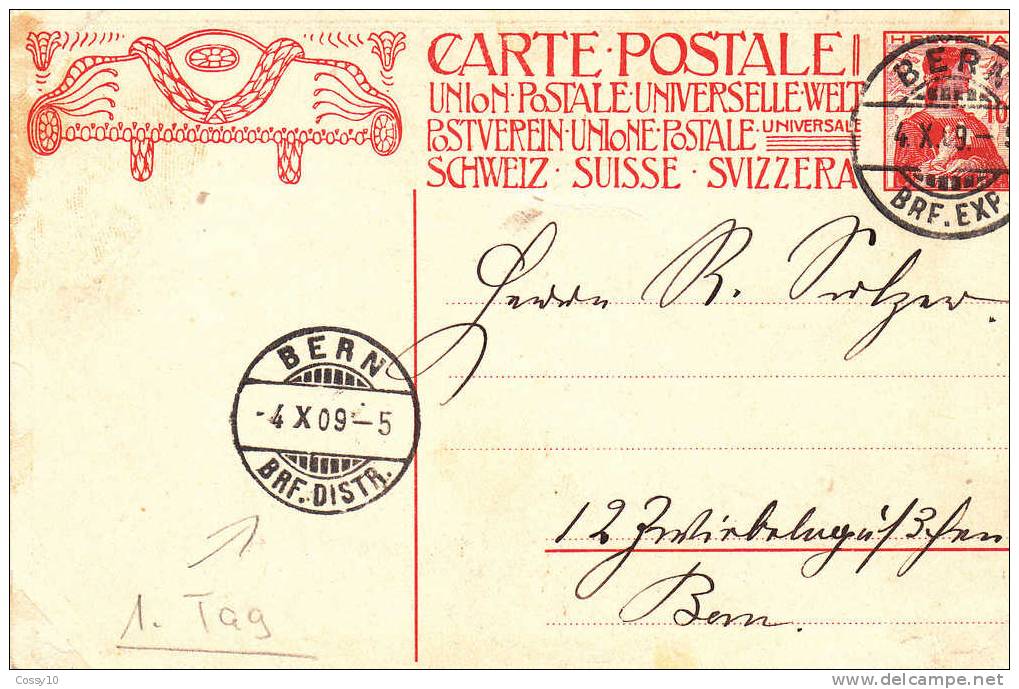 CARTE·POSTALE
UNION·POSTALE·UNIVERSELLE·WELT
POSTVEREIN·UNIONE·POSTALE·UNIVERSALE
SCHWEIZ·SUISSE·SVIZZERA
HELVETIA
10
BERN
4.X.09.–5
BRF.EXP.
Herrn R. Sulzer.
BERN
-4 X 09–5
BRF. DISTR.
12 Zwiebelngäßchen
Bern.
1. Tag
Cossy10
delcampe.net